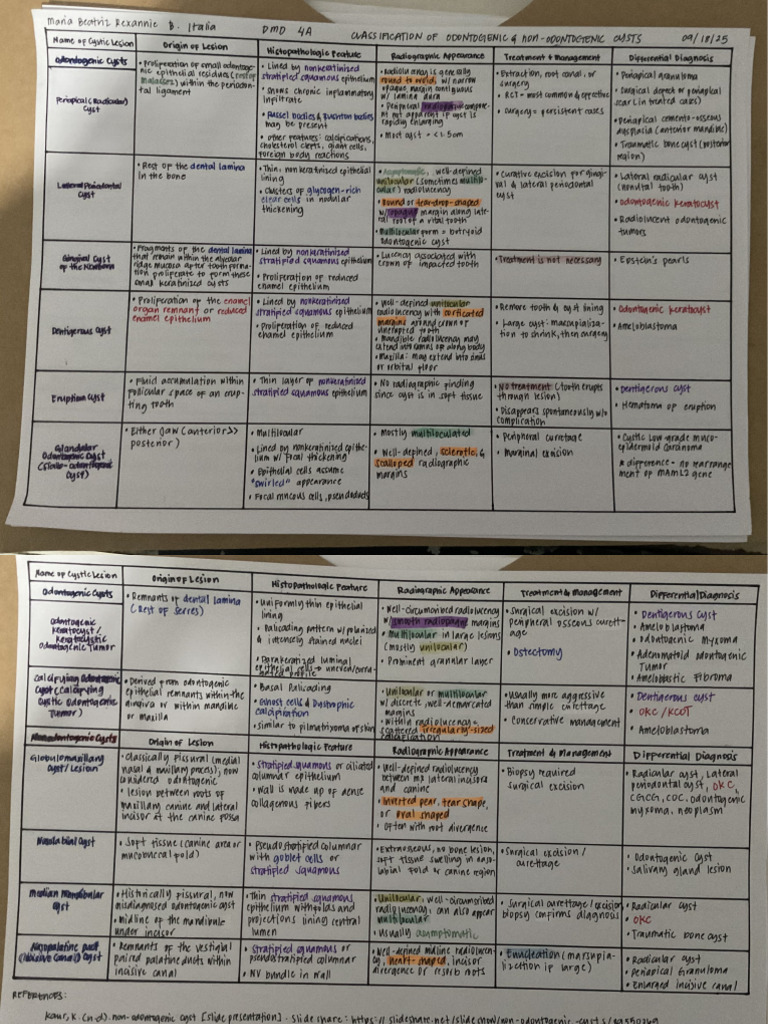 Maria Beatriz Rexannie B. Italia DMD 4A CLASSIFICATION OF ODONTOGENIC & NON-ODONTOGENIC CYSTS 09/18/25
Name of Cystic Lesion
Origin of Lesion
Histopathologic Feature
Radiographic Appearance
Treatment & Management
Differential Diagnosis
Odontogenic Cysts
Periapical (Radicular)
Cyst
• Proliferation of small odontogenic
epithelial residues (rest of
malassez) within the periodontal
ligament
• Lined by nonkeratinized
stratified squamous epithelium
• Shows chronic inflammatory
infiltrate
• Russel bodies & rushton bodies
may be present
• other features: calcifications,
cholesterol clefts, giant cells,
foreign body reactions
• Radiolucency is generally
round to ovoid w/ narrow
opaque margin contiguous
w/ lamina dura
• Peripheral
not apparent if cyst is
rapidly enlarging
• Most cyst = <1.5cm
• Extraction, root canal, or
surgery
• RCT = most common & effective
• surgery = persistent cases
• Periapical granuloma
• Surgical defect or periapical
scar (in treated cases)
• Periapical cemento-osseous
dysplasia (anterior mandible)
• Traumatic bone cyst (posterior
region)
Lateral Periodontal
Cyst
• Rest of the dental lamina
in the bone
• Thin, nonkeratinized epithelial
lining
• Clusters of glycogen-rich
clear cells in nodular
thickening
• Asymptomatic, well-defined
unilocular (sometimes multilocular)
radiolucency
• Round or tear-drop-shaped
w/ margin along lateral
root of a vital tooth
• Multilocular form = botryoid
odontogenic cyst
• Curative excision for gingival
& lateral periodontal
cyst
• Lateral radicular cyst
(nonvital tooth)
• odontogenic keratocyst
• Radiolucent odontogenic
tumors
Gingival Cyst
of the Newborn
• Fragments of the dental lamina
that remain within the alveolar
ridge mucosa after tooth formation
proliferate to form these
small keratinized cysts
• Lined by nonkeratinized
stratified squamous epithelium
• Proliferation of reduced
enamel epithelium
• Lucency associated with
crown of impacted tooth
• Treatment is not necessary
• Epstein's pearls
Dentigerous Cyst
• Proliferation of the enamel
organ remnant or reduced
enamel epithelium
• Lined by nonkeratinized
stratified squamous epithelium
• Proliferation of reduced
enamel epithelium
• Well-defined unilocular
radiolucency with corticated
margins around crown of
unerupted tooth
• Mandible: radiolucency may
extend into ramus or along body
• Maxilla: may extend into sinus
or orbital floor
• Remove tooth & cyst lining
• Large cyst - marsupialization
to shrink, then surgery
• Odontogenic keratocyst
• Ameloblastoma
Eruption Cyst
• Fluid accumulation within
follicular space of an erupting
tooth
• Thin layer of nonkeratinized
stratified squamous epithelium
• No radiographic finding
since cyst is in soft tissue
• No treatment (tooth erupts
through lesion)
• Disappears spontaneously w/o
complication
• Dentigerous cyst
• Hematoma of eruption
Glandular
Odontogenic Cyst
(Sialo-odontogenic
Cyst)
• Either jaw (anterior >>
posterior)
• Multilocular
• Lined by nonkeratinized epithelium
w/ focal thickening
• Epithelial cells assume
"swirled" appearance
• Focal mucous cells, pseudoducts
• Mostly multiloculated
• Well-defined, sclerotic, &
scalloped radiographic
margins
• Peripheral curettage
• marginal excision
• Cystic low-grade mucoepidermoid
carcinoma
* difference - no rearrangement
of MAML2 gene
Name of Cystic Lesion
Origin of Lesion
Histopathologic Feature
Radiographic Appearance
Treatment & Management
Differential Diagnosis
Odontogenic Cysts
Odontogenic
Keratocyst /
Keratocystic
Odontogenic Tumor
• Remnants of dental lamina
(Rest of Serres)
• Uniformly thin epithelial
lining
• Palisading pattern w/ polarized
& intensely stained nuclei
• Parakeratized luminal
epithelial cells →
• Well-circumscribed radiolucency
w/ smooth radiopaque margins
• Multilocular in large lesions
(mostly unilocular)
• Prominent granular layer
• Surgical excision w/
peripheral osseous curettage
• Ostectomy
• Dentigerous cyst
• Ameloblastoma
• Odontogenic Myxoma
• Adenomatoid odontogenic
Tumor
• Ameloblastic Fibroma
Calcifying Odontogenic
Cyst (Calcifying
Cystic Odontogenic
Tumor)
• Derived from odontogenic
epithelial remnants within the
gingiva or within mandible
or maxilla
• Basal Palisading
• Ghost cells & Dystrophic
calcification
• similar to pilmatrixoma of skin
• Unilocular or multilocular
w/ discrete, well-demarcated
margins
• Within radiolucency =
scattered irregularly-sized
calcification
• Usually more aggressive
than simple curettage
• Conservative management
• Dentigerous cyst
• OKC / KCOT
• Ameloblastoma
Nonodontogenic Cysts
Origin of Lesion
Histopathologic Feature
Radiographic Appearance
Treatment & Management
Differential Diagnosis
Globulomaxillary
Cyst / Lesion
• Classically fissural (medial
nasal & maxillary process); now
considered odontogenic
• lesion between roots of
maxillary canine and lateral
incisor at the canine fossa
• Stratified squamous or ciliated
columnar epithelium
• Wall is made up of dense
collagenous fibers
• Well-defined radiolucency
between mx lateral incisors
and canine
• Inverted pear, tear shape,
or oval shaped
• Often with root divergence
• Biopsy required
Surgical excision
• Radicular cyst, Lateral
periodontal cyst, OKC,
CGCG, COC, odontogenic
myxoma, neoplasm
Nasolabial Cyst
• Soft tissue (canine area or
mucobuccal fold)
• Pseudostratified columnar
with goblet cells or
stratified squamous
• Extraosseous, no bone lesion,
soft tissue swelling in nasolabial
fold or canine region
• Surgical excision /
curettage
• Odontogenic cyst
• Salivary gland lesion
Median Mandibular
Cyst
• Historically fissural, now
misdiagnosed odontogenic cyst
• midline of the mandible
under incisor
• Thin stratified squamous
epithelium with folds and
projections lining central
lumen
• Unilocular, well-circumscribed
radiolucency, can also appear
multilocular
• Usually asymptomatic
• Surgical curettage / excision,
biopsy confirms diagnosis
• Radicular cyst
• OKC
• Traumatic bone cyst
Nasopalatine Duct
(Incisive Canal) Cyst
• Remnants of the vestigial
paired palatine ducts within
incisive canal
• Stratified squamous or
pseudostratified columnar
• NV bundle in wall
• Well-defined midline radiolucency,
heart-shaped, incisor
divergence or resorb roots
• Enucleation (marsupialization
if large)
• Radicular cyst
• Periapical Granuloma
• Enlarged incisive canal
REFERENCES:
Kaur, K. (n.d). non-odontogenic cyst [Slide presentation]. Slide share: https://slideshare.net/slideshow/non-odontogenic-cysts/